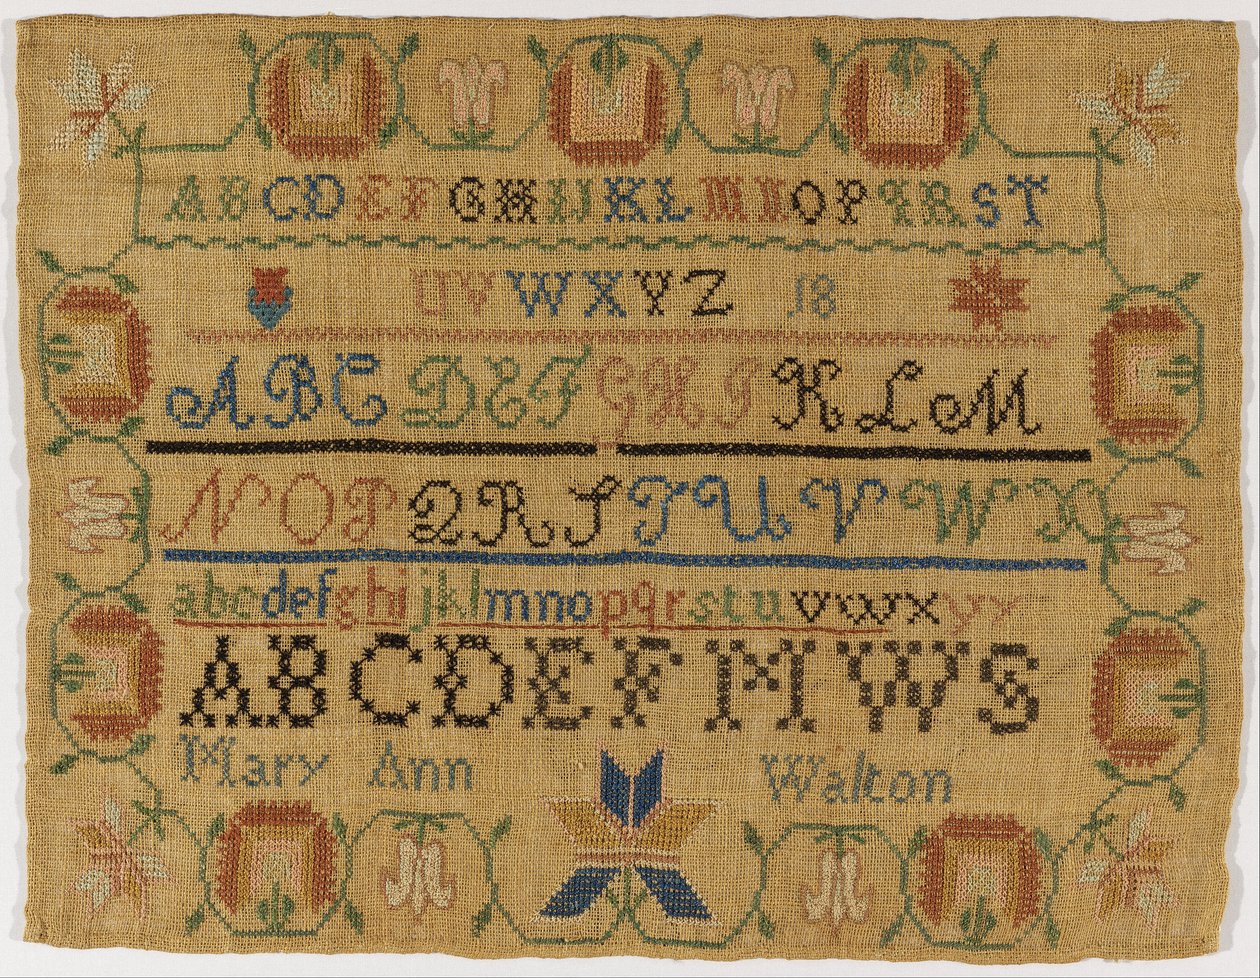 ABCDEFGHIJKLMNOPQRST
UVWXYZ 18
ABCDEFGHIKLM
NOPQRSTUVWX
abcdefghijklmnopqrstuvwxyy
ABCDEFMWS
Mary Ann Walton